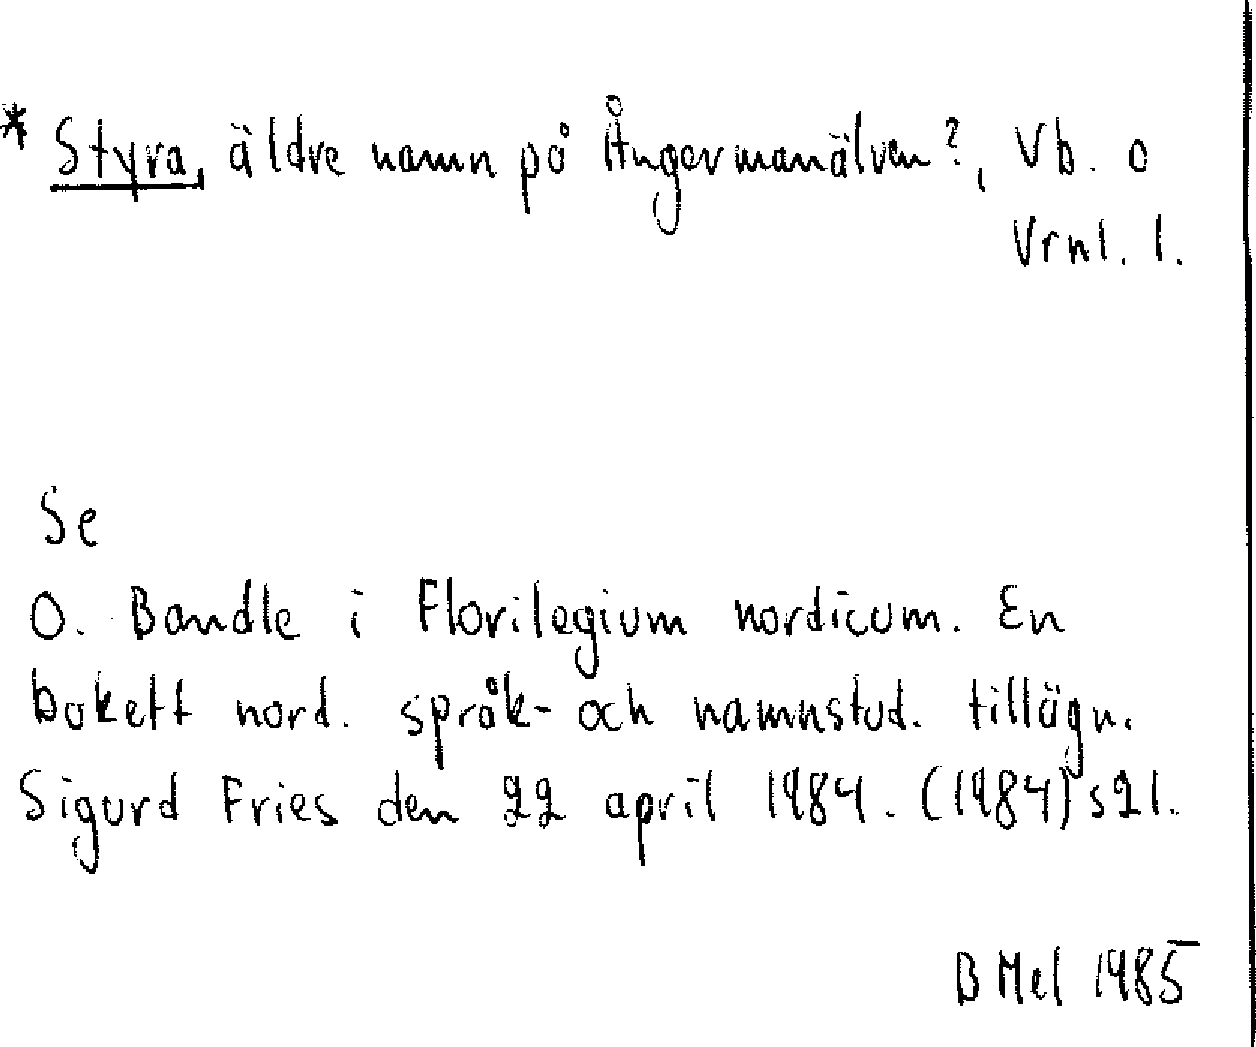 * Styra, äldre namn på Ångermanälven?, Vb. o
Vrml. l.
Se
O. Bandle i Florilegium nordicum. En
bukett nord. språk- och namnstud. tillägn.
Sigurd Fries den 22 april 1984. (1984) s 21.
B Mel 1985